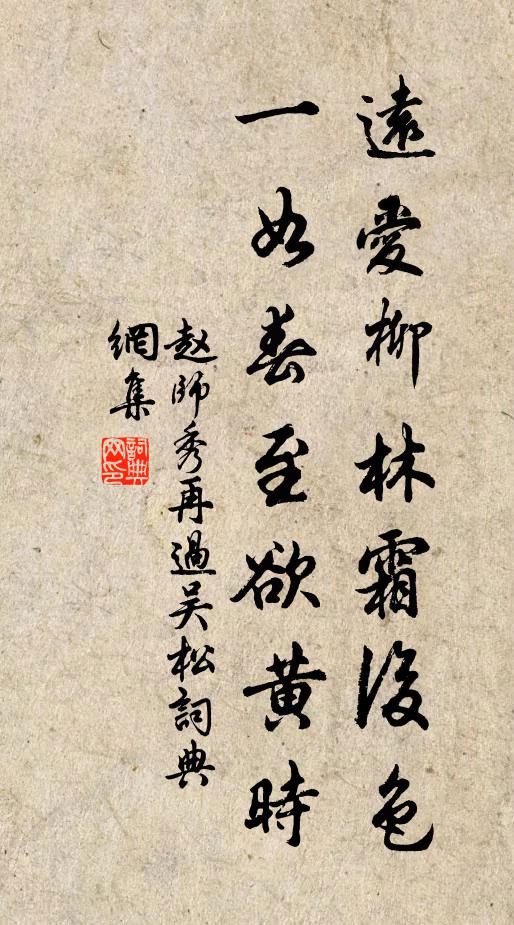 遠愛柳林霜後色
一如春至欲黄時
赵師秀再過吴松詞典
網集
詞典網印